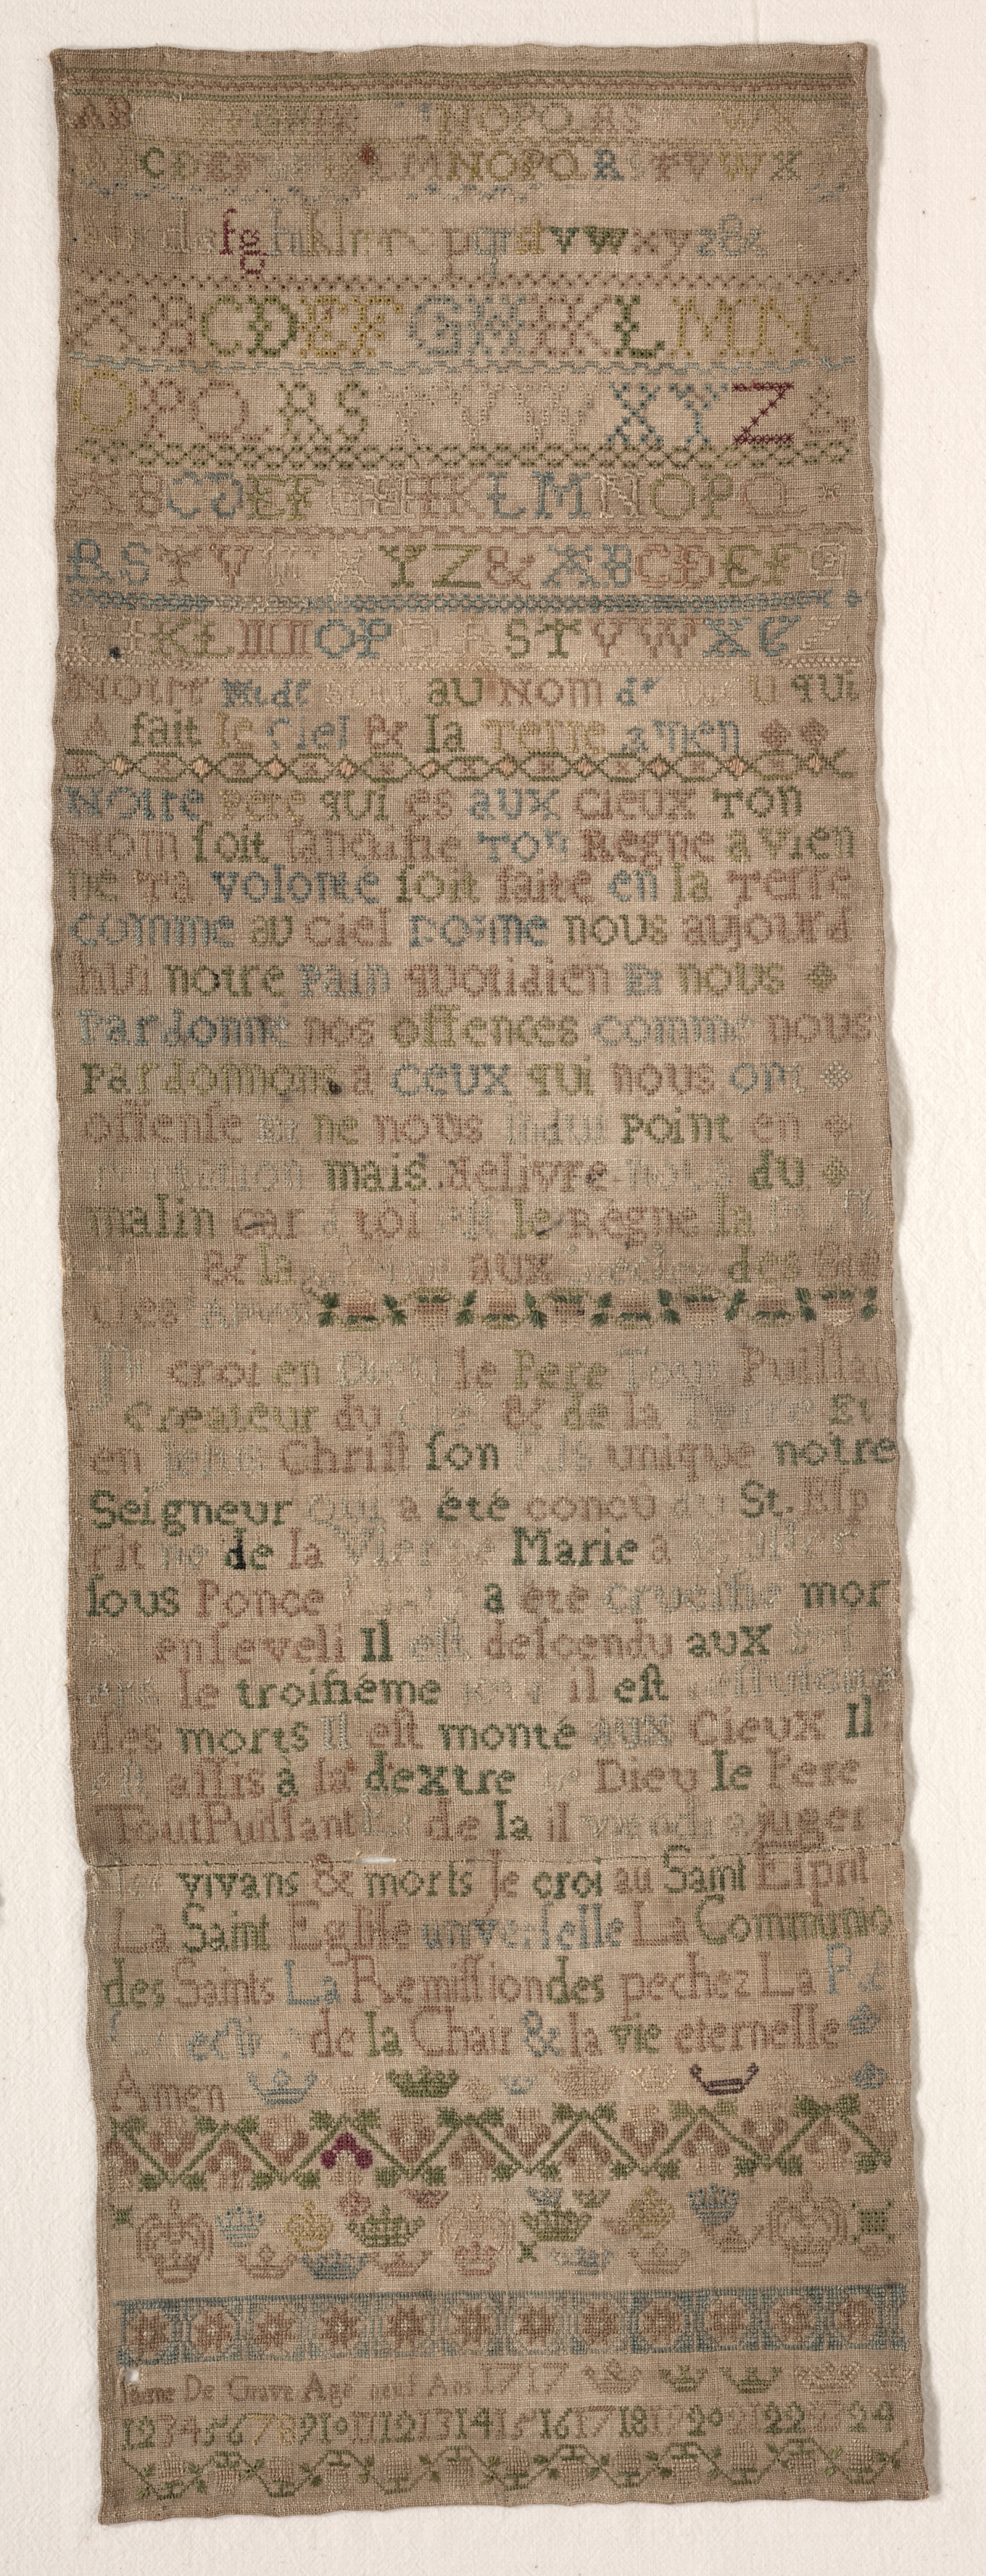 AB EFGHIK NOPQRS WX
CDEFHI LMNOPQRSTVWX
defghiklmn pqrstvwxyz&
ABCDEFGHIKLMN
OPQRSTVWXYZ&
ABCDEFGHIKLMNOPQ
RSTVWXYZ&ABCDEFG
HIKLMNOPQRSTVWXYZ
Notre au Nom de qui
A fait le Ciel & la Terre amen
Notre Pere qui es aux cieux Ton
Nom ſoit ſanctifie Ton Regne avien
ne Ta volonte ſoit faite en la Terre
comme au ciel Donne nous aujourd
hui notre Pain quotidien Et nous
Pardonne nos offences comme nous
pardonnons à ceux qui nous ont
offenſe Et ne nous indui point en
tentation mais delivre nous du
malin car à toi eſt le Règne la
& la aux des Sie
cles Amen
croi en Dieu le Pere Tout Puiſſan
Createur du Ciel & de la Terre Et
en Jeſus Chriſt ſon Fils unique notre
Seigneur Qui a été concû du St. Eſp
rit né de la Vierge Marie a
ſous Ponce a ete crucifie mor
enſeveli Il eſt deſcendu aux
le troiſiéme il eſt
des morts Il eſt monté aux Cieux Il
eſt aſſis à la dextre de Dieu le Pere
Tout Puiſſant Et de la il viendra juger
les vivans & morts Je croi au Saint Eſprit
La Saint Egliſe unverſelle La Communio
des Saints La Remiſſion des pechez La Re
ſurrection de la Chair & la vie eternelle
Amen
De Grave Agé neuf Ans 1717
1 2 3 4 5 6 7 8 9 10 11 12 13 14 15 16 17 18 19 20 21 22 23 24